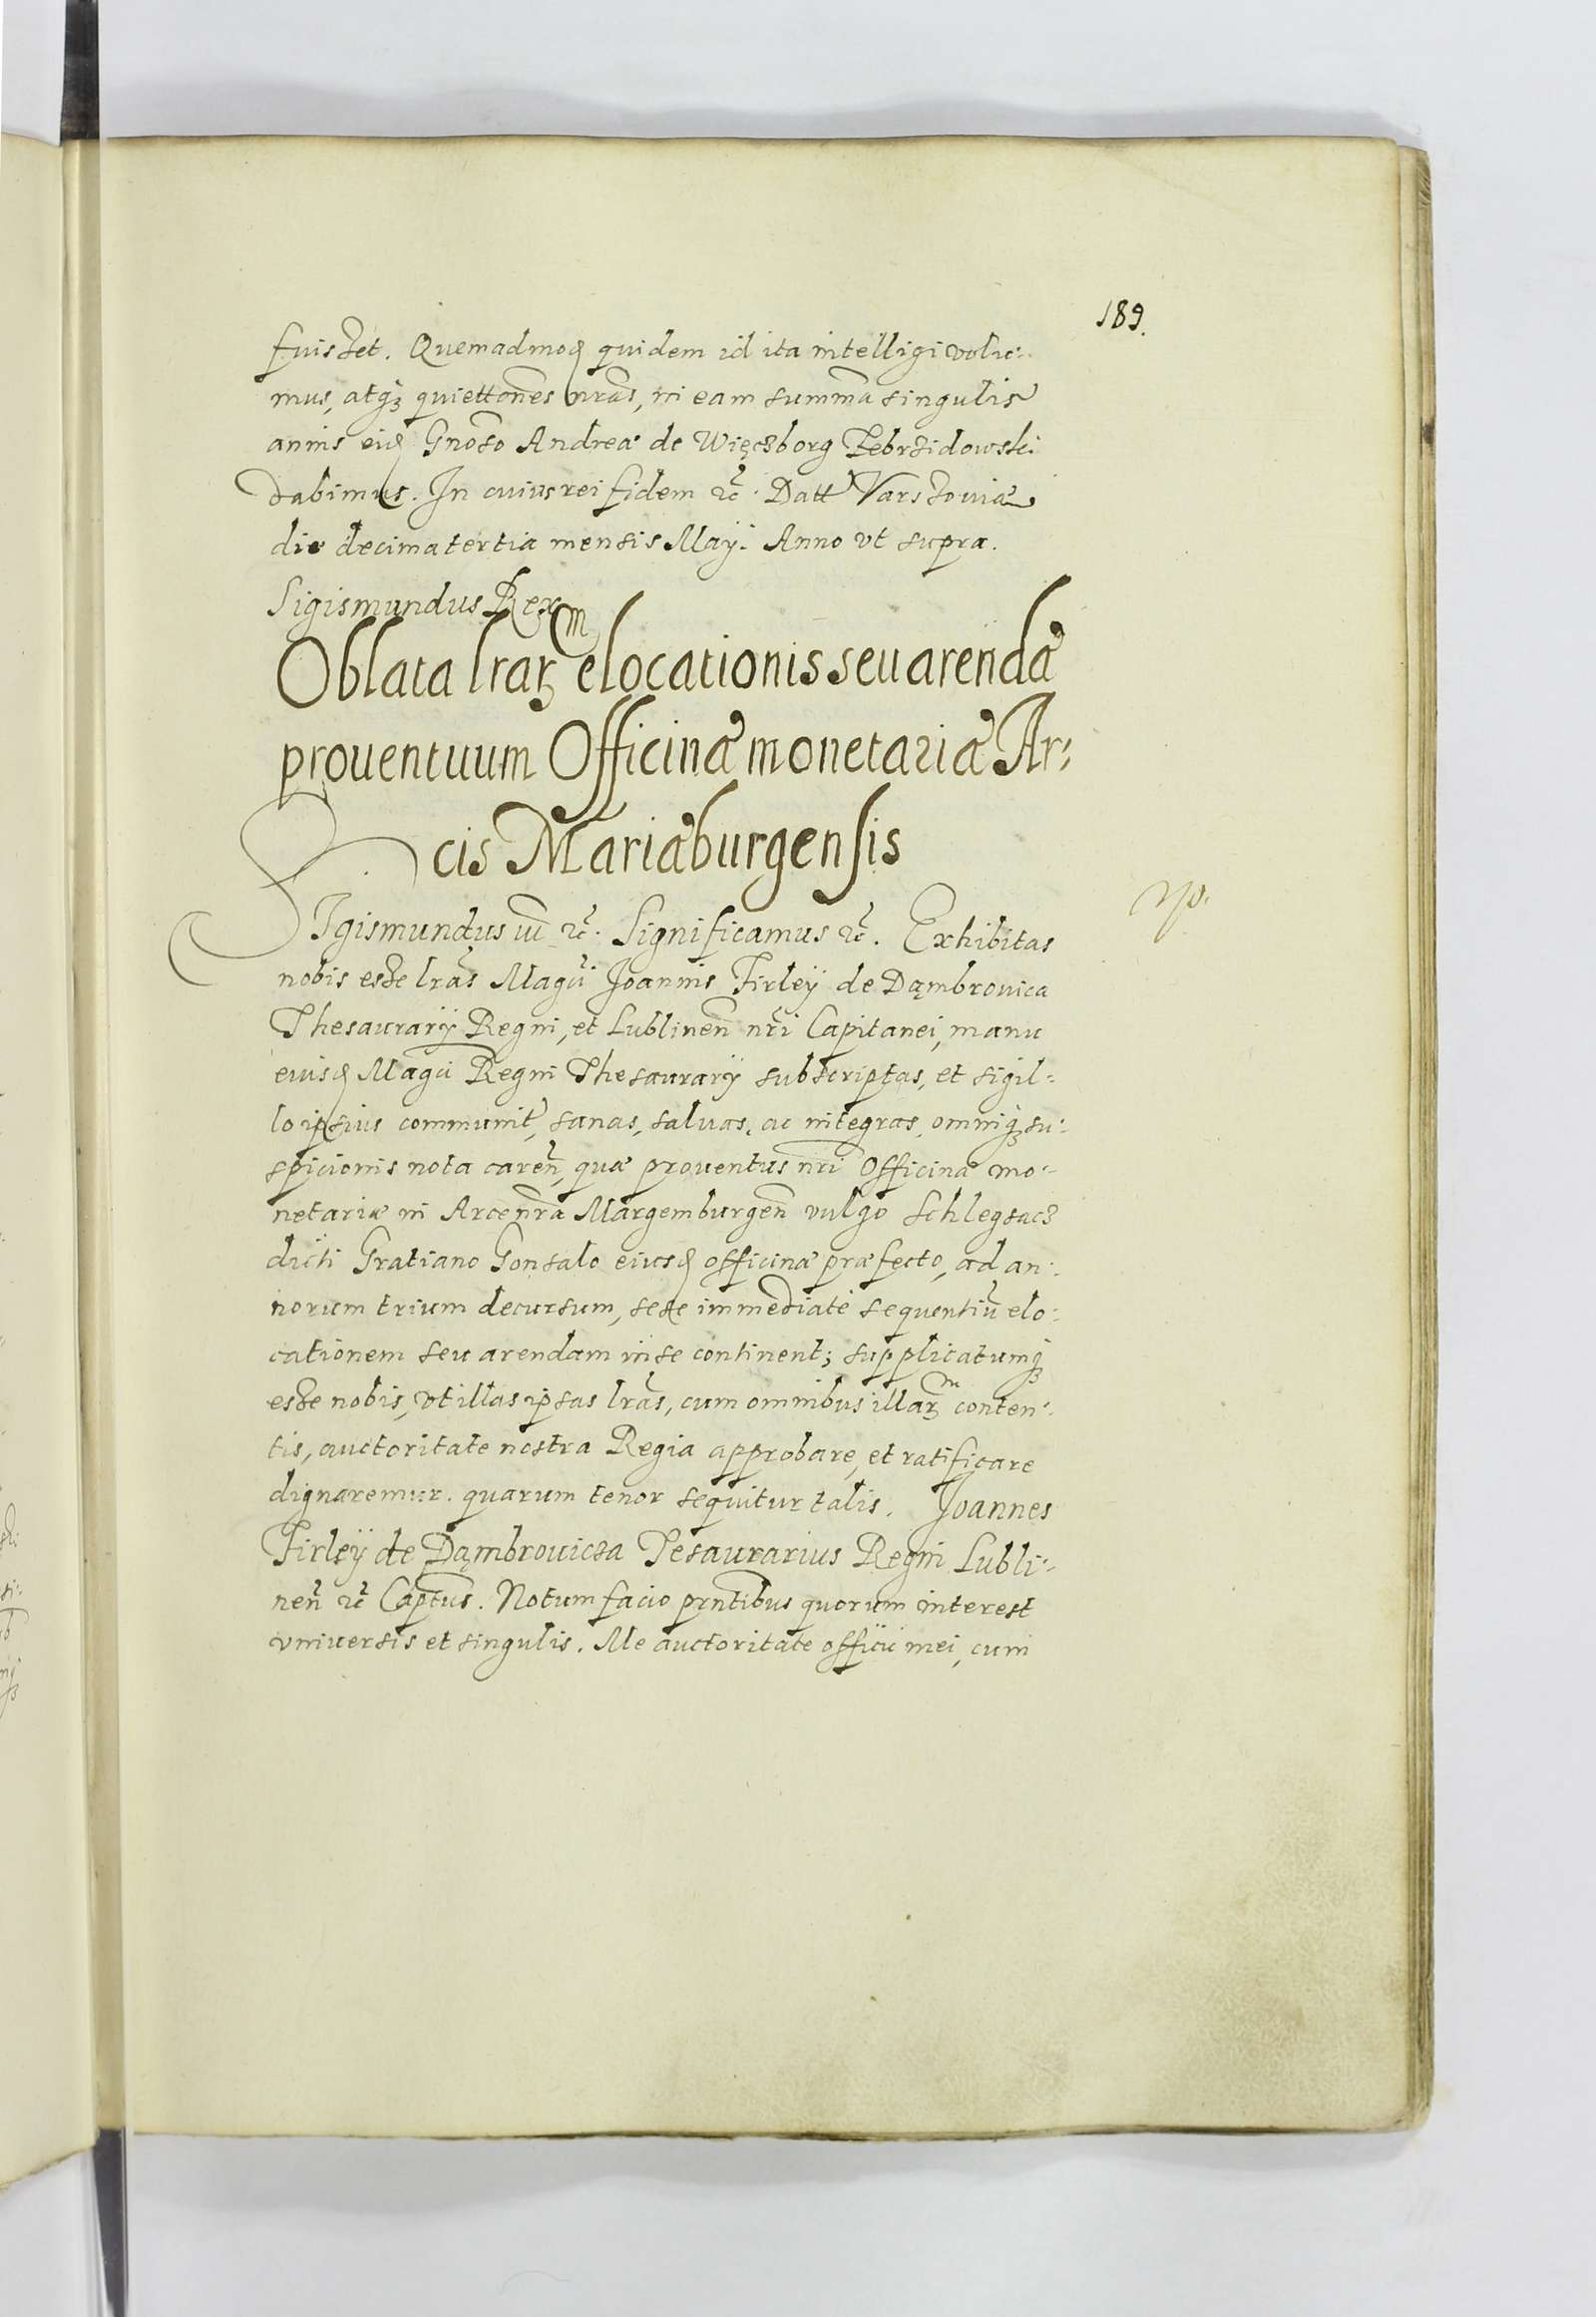 189.
fuisset. Quemadmoꝺ quidem id ita intelligi volu⸗
mus, atqꝫ quiettões nr̃as, in eam summã singulis
annis eiꝺ Gnõso Andreæ de Więczborg Zebrzidowski
dabimus. In cuius rei fidem ꝛc̃. Datt Varssouiæ
die decima tertia mensis Maÿ. Anno vt supra.
Sigismundus Rex
Oblata lraꝝ elocationis seu arendæ
prouentuum Officinæ monetariæ Ar⸗
cis Mariæburgensis
SIgismundus iii ꝛc̃. Significamus ꝛc̃. Exhibitas
nobis esse lrãs Magci Joannis Firleÿ de Dąmbrouica
Thesaurarÿ Regni, et Lublineñ nr̃i Capitanei, manu
eiusꝺ Magci Regni Thesaurarÿ subscriptas, et sigil⸗
lo ipsius communit, sanas, saluas, ac integras, omniqꝫ su⸗
spicionis nota careñ, quæ prouentus nr̃i Officinæ mo⸗
netariæ in Arce nr̃a Margemburgeñ vulgo Schlegsacz
dicti Gratiano Gonsalo eiusꝺ officinæ præfecto, ad an⸗
norum trium decursum, sese immediatè sequentiũ elo⸗
cationem seu arendam in se continent; supplicatumqꝫ
esse nobis, vt illas ipsas lrãs, cum omnibus illaꝝ conten⸗
tis, auctoritate nostra Regia approbare, et ratificare
dignaremur. quarum tenor sequitur talis. Joannes
Firleÿ de Dąmbrouicza Tesaurarius Regni Lubli⸗
neñ ꝛc̃ Captũs. Notum facio prñtibus quorum interest
vniuersis et singulis. Me auctoritate officii mei, cum